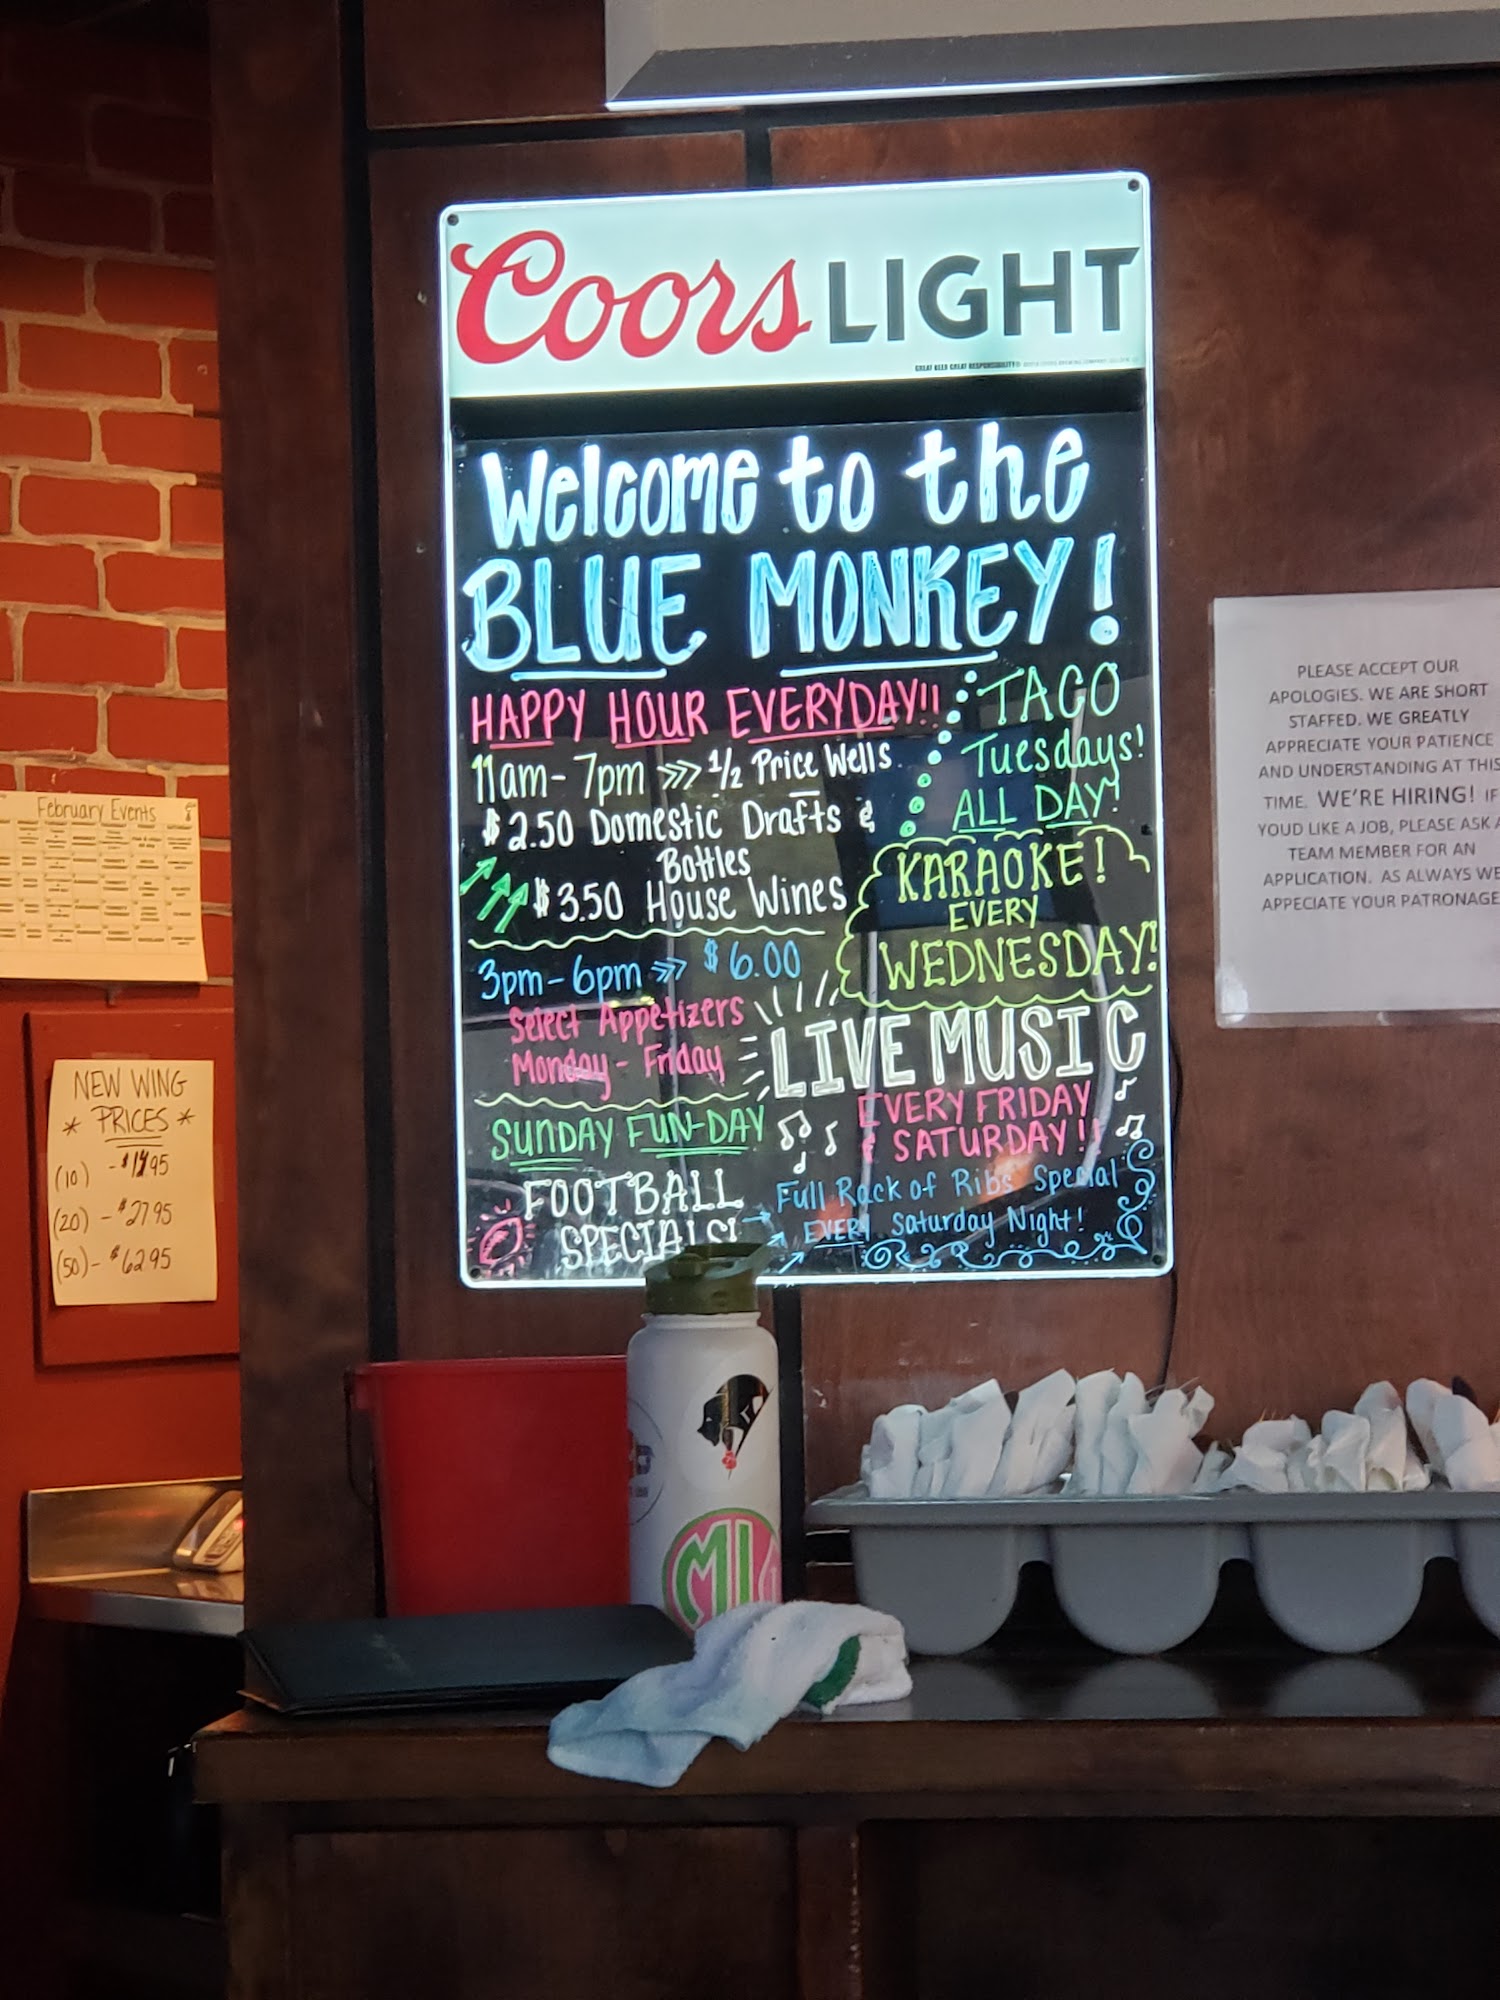 Coors LIGHT
GREAT BEER GREAT RESPONSIBILITY®
Welcome to the
BLUE MONKEY!
HAPPY HOUR EVERYDAY!!
11am-7pm >>> 1/2 Price Wells
$2.50 Domestic Drafts &
Bottles
$3.50 House Wines
3pm-6pm >>> $6.00
Select Appetizers
Monday - Friday
SUNDAY FUN-DAY
FOOTBALL
SPECIALS!
TACO
Tuesdays!
ALL DAY!
KARAOKE!
EVERY
WEDNESDAY!
LIVE MUSIC
EVERY FRIDAY
& SATURDAY!
Full Rack of Ribs Special
EVERY Saturday Night!
February Events
NEW WING
* PRICES *
(10) -
(20) - $27.95
(50) - $62.95
PLEASE ACCEPT OUR
APOLOGIES. WE ARE SHORT
STAFFED. WE GREATLY
APPRECIATE YOUR PATIENCE
AND UNDERSTANDING AT THIS
TIME. WE'RE HIRING! IF
YOUD LIKE A JOB, PLEASE ASK A
TEAM MEMBER FOR AN
APPLICATION. AS ALWAYS WE
APPECIATE YOUR PATRONAGE